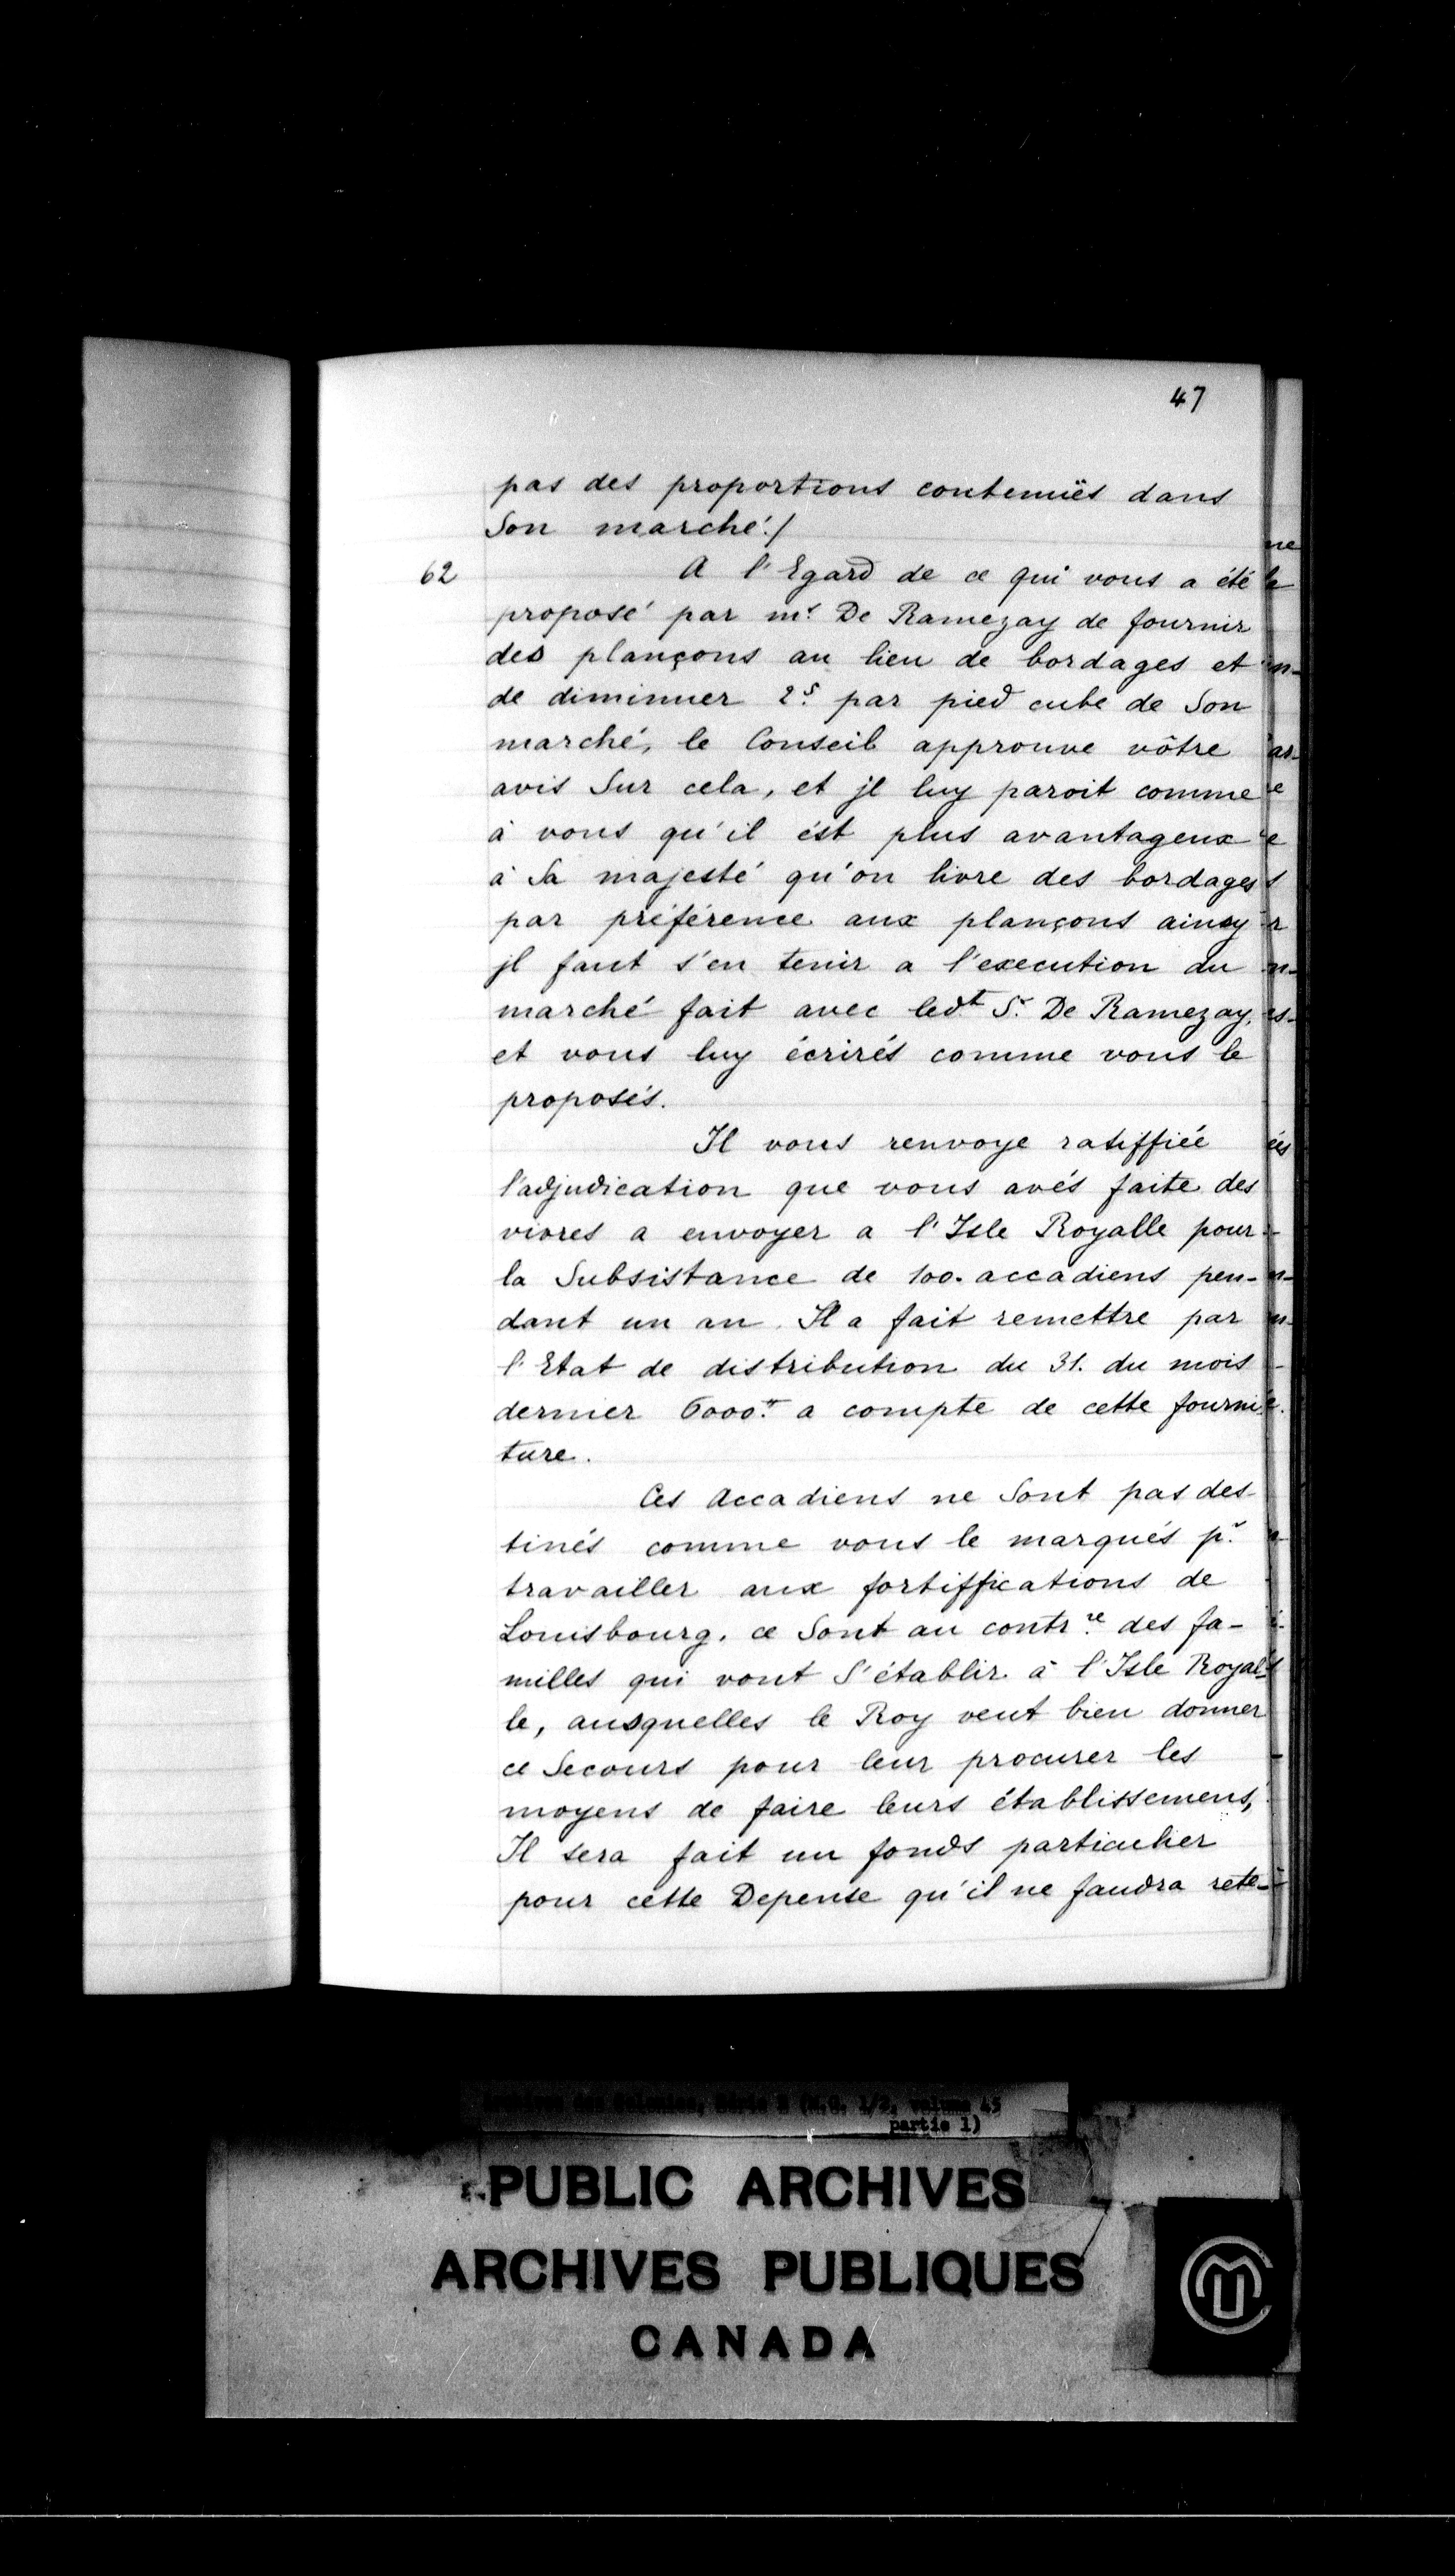 47
pas des proportions contenuës dans
Son marché./
62
A l'Egard de ce qui vous a été
proposé par mr. De Ramezay de fournir
des plançons au lieu de bordages et
de diminuer 2s. par pied cube de Son
marché, le Conseil approuve vôtre
avis Sur cela, et jl luy paroit comme
à vous qu'il ést plus avantageux
à Sa majesté qu'on livre des bordages
par préférence aux plançons ainsy
jl faut s'en tenir a l'execution du
marché fait avec ledt Sr. De Ramezay,
et vous luy écrirés comme vous le
proposés.
Il vous renvoye ratiffiée
l'adjudication que vous avés faite des
vivres a envoyer a l'Isle Royalle pour
la Subsistance de 100. accadiens pen-
dant un an. Il a fait remettre par
l'Etat de distribution du 31. du mois
dernier 6000.tt a compte de cette fourni-
ture.
Ces Accadiens ne Sont pas des-
tinés comme vous le marqués pr.
travailler aux fortiffications de
Louisbourg, ce Sont au contr.re des fa-
milles qui vont S'établir à l'Isle Royal-
le, ausquelles le Roy veut bien donner
ce Secours pour leur procurer les
moyens de faire leurs établissemens,
Il sera fait un fonds particulier
pour cette Depense qu'il ne faudra rete-
(M.G. 1/2, volume 45
partie 1)
PUBLIC ARCHIVES
ARCHIVES PUBLIQUES
CANADA